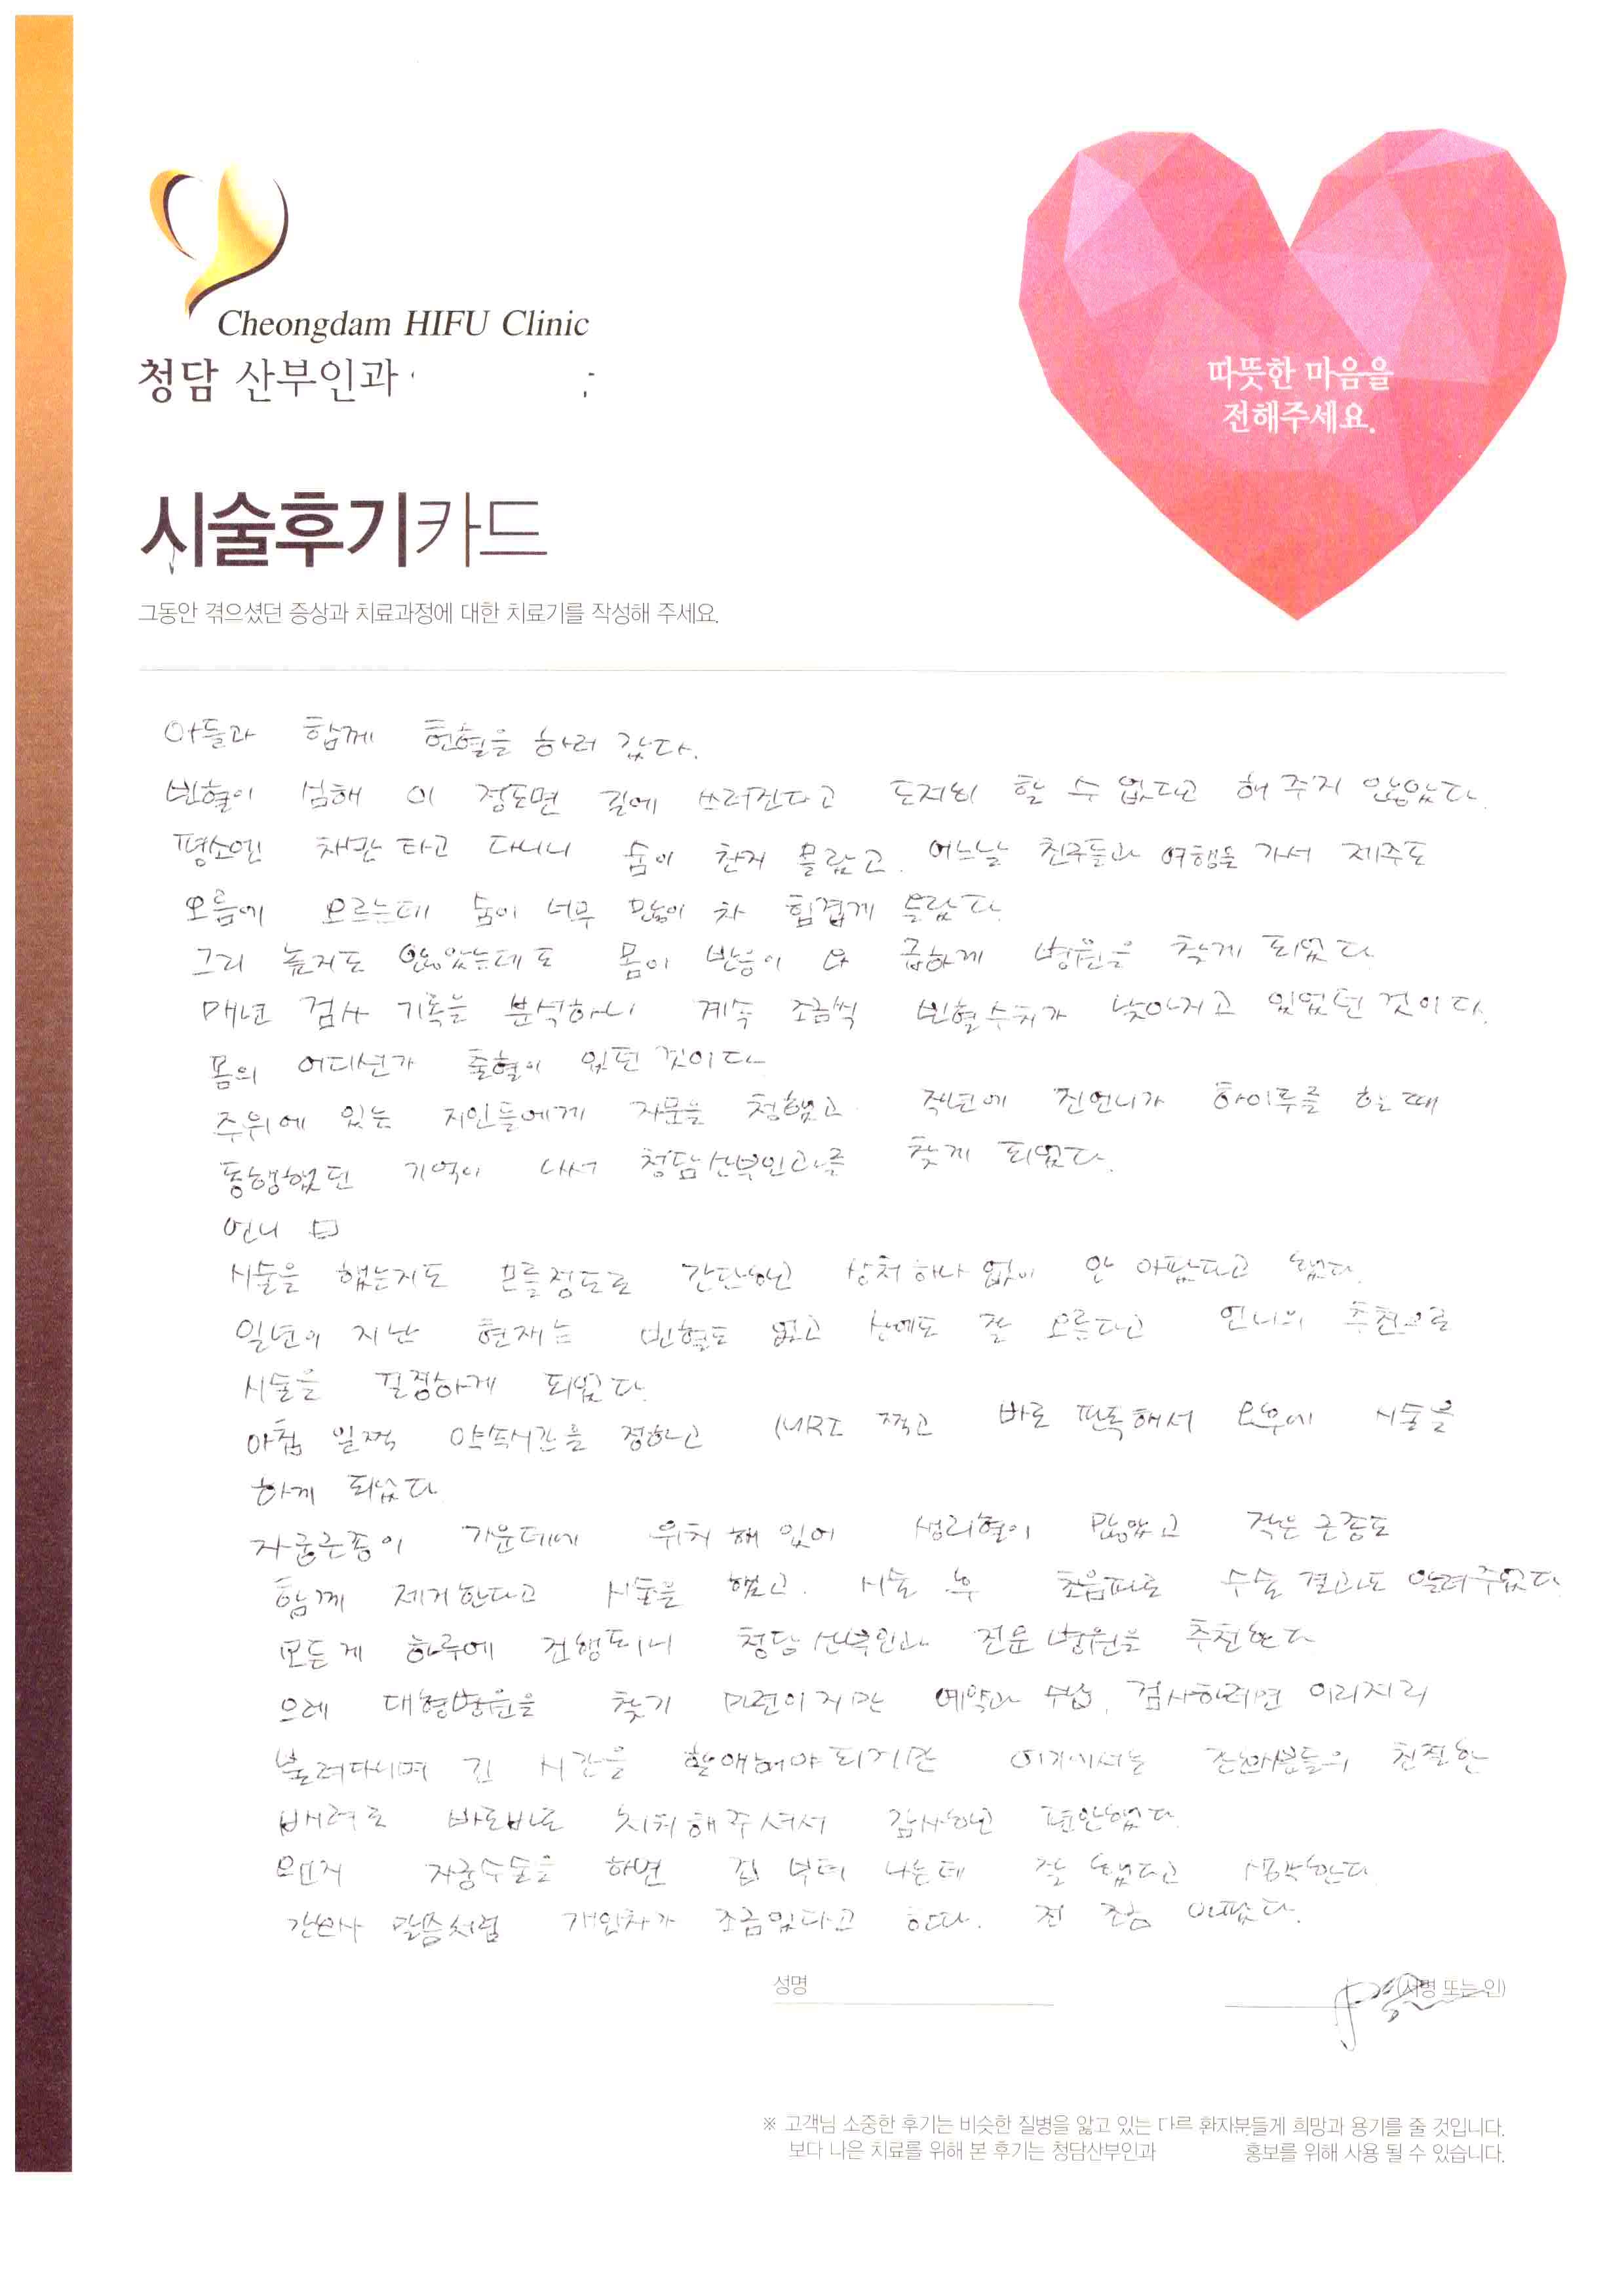 Cheongdam HIFU Clinic
청담 산부인과
따뜻한 마음을
전해주세요.
시술후기카드
그동안 겪으셨던 증상과 치료과정에 대한 치료기를 작성해 주세요.
아들과 함께 헌혈을 하러 갔다.
빈혈이 심해 이 정도면 길에 쓰러진다고 도저히 할 수 없다고 해 주지 않았다.
평소엔 차만 타고 다니니 숨이 찬지 몰랐고. 어느날 친구들과 여행을 가서 제주도
오름에 오르는데 숨이 너무 많이 차 힘겹게 올랐다.
그리 높지도 않았는데도 몸이 반응이 와 급하게 병원을 찾게 되었다
매년 검사 기록을 분석하니 계속 조금씩 빈혈수치가 낮아지고 있었던 것이다.
몸의 어디선가 출혈이 있던 것이다
주위에 있는 지인들에게 자문을 청했고 작년에 친언니가 하이푸를 할 때
동행했던 기억이 나서 청담산부인과를 찾게 되었다.
언니
시술을 했는지도 모를정도로 간단하고 상처 하나 없이 안 아팠다고 했다.
일년이 지난 현재는 빈혈도 없고 산에도 잘 오른다고 언니의 추천으로
시술을 결정하게 되었다.
아침 일찍 약속시간을 정하고 (MRI 찍고 바로 판독해서 오후에 시술을
하게 되었다
자궁근종이 가운데에 위치 해 있어 생리혈이 많았고 작은 근종도
함께 제거한다고 시술을 했고. 시술 후 초음파로 수술 결과도 알려주었다
모든게 하루에 진행되니 청담산부인과 전문 병원을 추천한다
으레 대형병원을 찾기 마련이지만 예약과 수납, 검사하려면 이리저리
불려다니며 긴 시간을 할애해야 되지만 여기에서는 간호사분들의 친절한
배려로 바로바로 처치해주셔서 감사하고 편안했다.
먼저 자궁수술을 하면 겁 부터 나는데 잘 했다고 생각한다
간호사 말씀처럼 개인차가 조금있다고 하다. 전 조금 아팠다.
성명
(서명 또는 인)
※ 고객님 소중한 후기는 비슷한 질병을 앓고 있는 다르 환자분들게 희망과 용기를 줄 것입니다.
보다 나은 치료를 위해 본 후기는 청담산부인과 홍보를 위해 사용 될 수 있습니다.